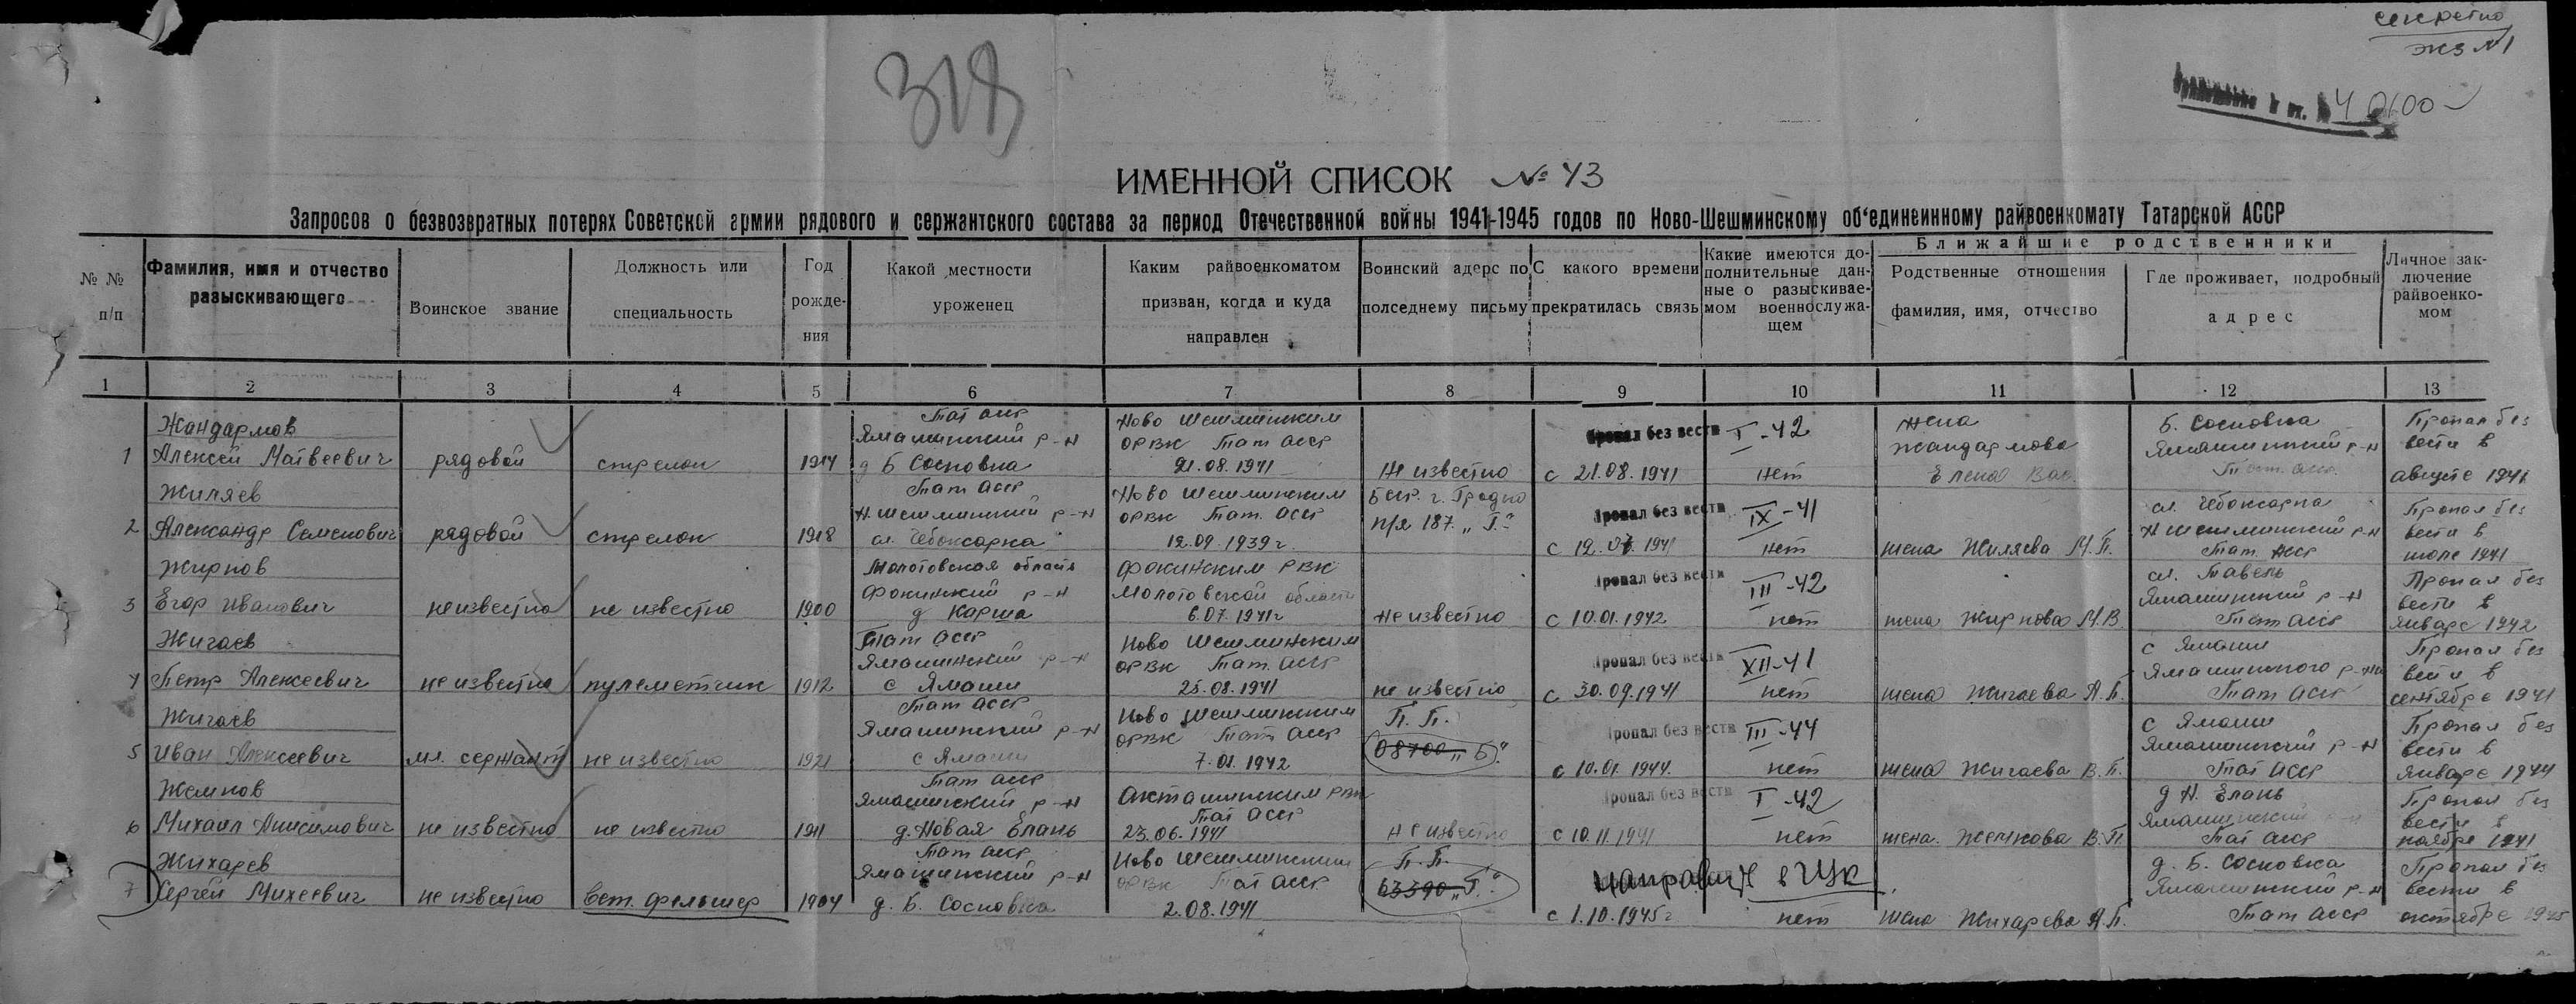 секретно
экз №1
Приложение к вх. №
318
ИМЕННОЙ СПИСОК № 43
Запросов о безвозвратных потерях Советской армии рядового и сержантского состава за период Отечественной войны 1941-1945 годов по Ново-Шешминскому об'единеинному райвоенкомату Татарской АССР
№ № п/п
Фамилия, имя и отчество разыскивающего
Воинское звание
Должность или специальность
Год рожде-ния
Какой местности уроженец
Каким райвоенкоматом призван, когда и куда направлен
Воинский адерс по полседнему письму
С какого времени прекратилась связь
Какие имеются до-полнительные дан-ные о разыскивае-мом военнослужа-щем
Ближайшие родственники
Родственные отношения фамилия, имя, отчество
Где проживает, подробный адрес
Личное зак-лючение райвоенко-мом
1 2 3 4 5 6 7 8 9 10 11 12 13
Жандармов Тат асср Ново Шешминским Пропал без вести I-42 жена Б. Сосновка Пропал без
Ямашинский р-н ОРВК Тат асср Жандармова Ямашинский р-н вести в
1 Алексей Матвеевич рядовой стрелок 1914 д Б Сосновка 21.08.1941 Не известно с 21.08.1941 нет Елена Вас. Тат. асср августе 1941
Жиляев Тат асср Ново Шешминским г. Гродно Пропал без вести IX-41 сл. Чебоксарка Пропал без
Н. Шешминский р-н ОРВК Тат. асср п/я 187 „Г" Н Шешминский р-н вести в
2 Александр Семенович рядовой стрелок 1918 сл. Чебоксарка 12.09.1939 г с 12.07.1941 нет жена Жиляева М.П. Тат. асср июле 1941
Жирнов Молотовская область Фокинским РВК Пропал без вести III-42 Пропал без
Фокинский р-н Молотовской области Ямашинский р-н вести в
3 Егор Иванович неизвестно не известно 1900 д Карша 6.07.1941г Не известно с 10.01.1942 нет жена Жирнова М.В. Тат асср январе 1942
Жигаев Тат асср Ново Шешминским Пропал без вести XII-41 с Ямаши Пропал без
Ямашинский р-н ОРВК Тат. асср Ямашинского р-на вести в
4 Петр Алексеевич не известно пулеметчик 1912 с Ямаши 25.08.1941 не известно с 30.09.1941 нет жена Жигаева А.П. Тат асср сентябре 1941
Жигаев Тат асср Ново Шешминским П.П. Пропал без вести III-44 с Ямаши Пропал без
Ямашинский р-н ОРВК Тат асср 08700 „Б" Ямашинский р-н вести в
5 Иван Алексеевич мл. сержант не известно 1921 с Ямаши 7.01.1942 с 10.01.1944. нет жена Жигаева В.П. Тат асср январе 1944
Жемков Тат асср Акташинским РВК Пропал без вести I-42 д Н. Елань Пропал без
Ямашинский р-н Тат асср Ямашинский р-н вести в
6 Михаил Анисимович не известно не известно 1911 д. Новая Елань 23.06.1941 Не известно с 10.11.1941 нет жена. Жемкова В.П. Тат асср ноябре 1941
Жихарев Тат асср Ново Шешминским П.П. направить в ЦК д. Б. Сосновка Пропал без
Ямашинский р-н ОРВК Тат асср 63390 „Г" Ямашинский р-н вести в
7 Сергей Михеевич не известно вет. фельшер 1904 д. Б. Сосновка 2.08.1941 с 1.10.1945г нет жена Жихарева А.П. Тат асср октябре 1945